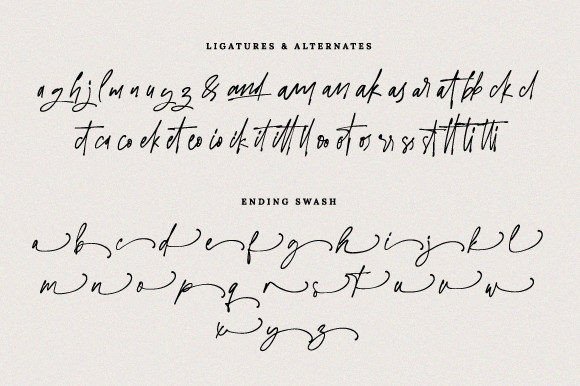 LIGATURES & ALTERNATES
a g h j l m n u y z & and am an ak as ar at bb ck cl
ct ca co ek et eo io ik it itt ll oo ot os rr ss st tt ti tti
ENDING SWASH
a b c d e f g h i j k l
m n o p q r s t u v w
x y z